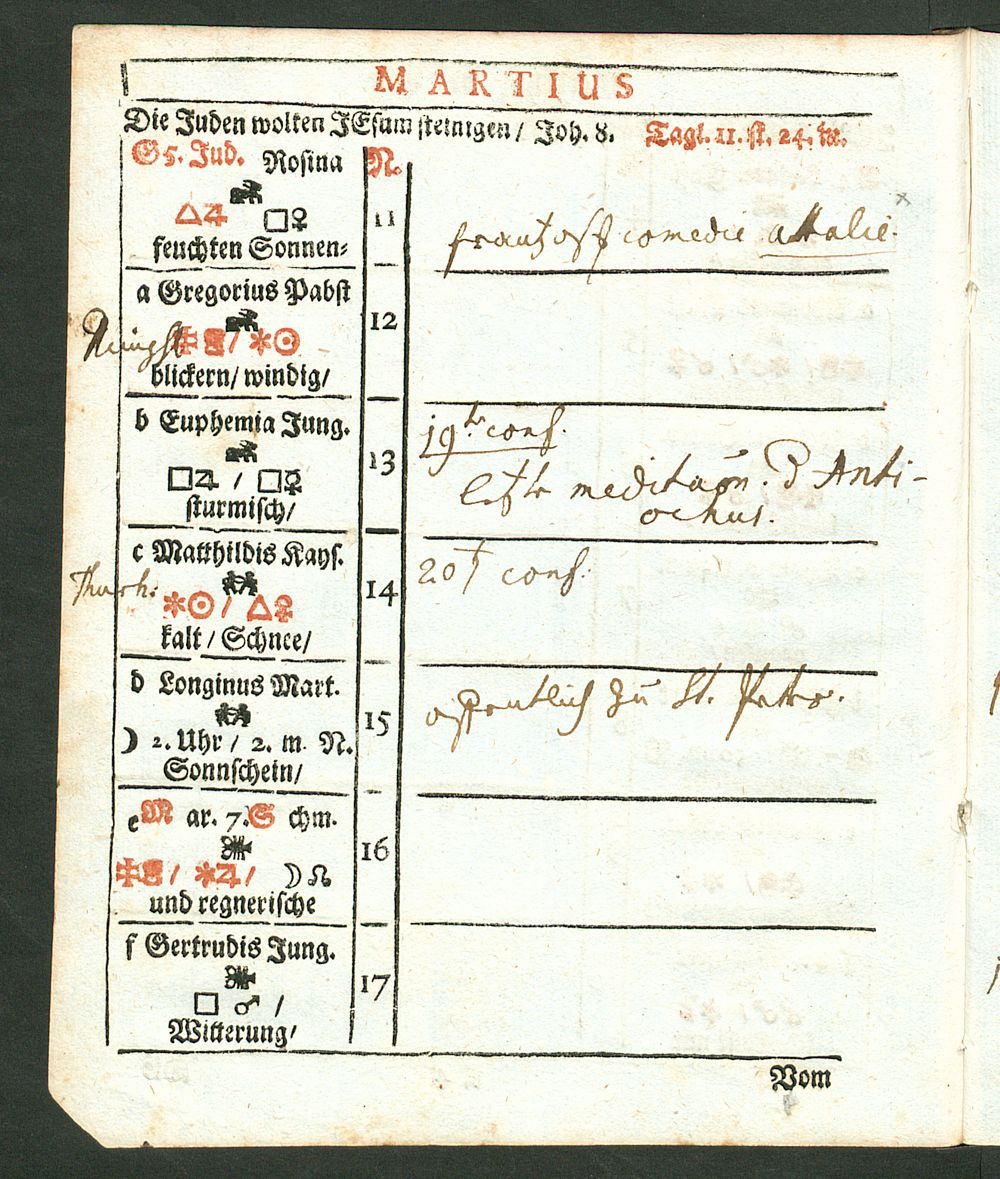 MARTIUS
Die Juden wolten JEsum steinigen / Joh. 8. Tagl. 11. st. 24. m.
G5. Jud. Rosina N.
△♃ □♀ 11
feuchten Sonnen-
frantzösß comedie attalie.
a Gregorius Pabst
12
/ ✶☉
blickern/ windig/
b Euphemia Jung.
19te conf.
13
□♃ / □☿
letzte meditaon. P Anti-
ochus.
sturmisch/
c Matthildis Kays.
20t conf.
14
✶☉ / △♀
kalt / Schnee/
d Longinus Mart.
öffentlich zu St. Peter.
15
☽ 2. Uhr / 2. m. N.
Sonnschein/
e Mar. 7. Schm.
16
/ ✶♃/ ☽☊
und regnerische
f Gertrudis Jung.
17
□ ♂ /
Witterung/
Vom